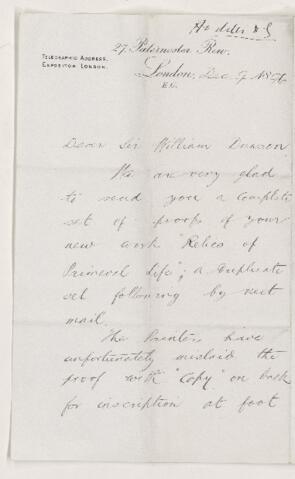 27, Paternoster Row,
TELEGRAPHIC ADDRESS,
EXPOSITOR LONDON.
London, Dec 9 1896
E.C.
Dear Sir William Dawson
We are very glad
to send you a complete
set of proofs of your
new work "Relics of
Primeval Life"; a duplicate
set following by next
mail.
The Printers have
unfortunately mislaid the
proof with "Copy" on back
for inscription at foot